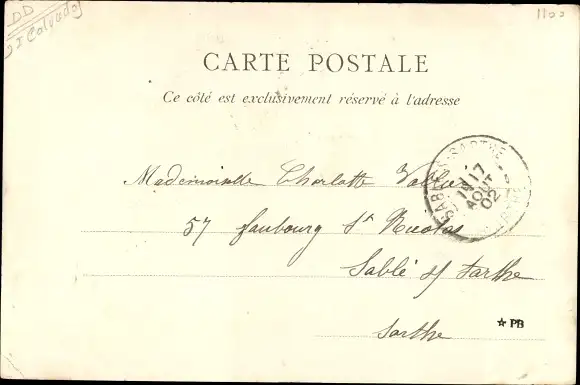 DD
Calvados
1100
CARTE POSTALE
Ce côté est exclusivement réservé à l'adresse
Mademoiselle Charlotte
57 faubourg St Nicolas
Sablé s/ Sarthe
Sarthe
SARTHE
17
AOUT
02
☆ PB